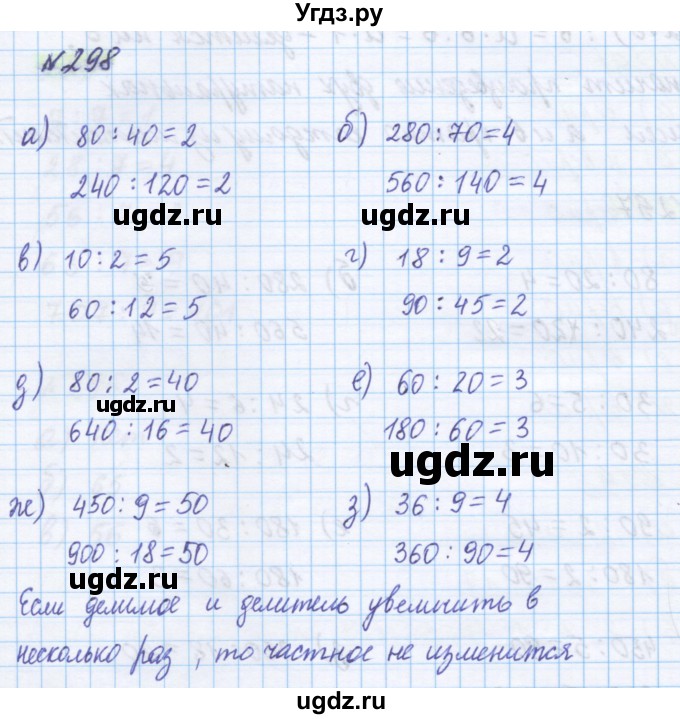 Угдз.ру
№298
а) 80 : 40 = 2
240 : 120 = 2
б) 280 : 70 = 4
560 : 140 = 4
ugdz.ru
ugdz.ru
в) 10 : 2 = 5
60 : 12 = 5
г) 18 : 9 = 2
90 : 45 = 2
д) 80 : 2 = 40
ugdz.ru
640 : 16 = 40
е) 60 : 20 = 3
180 : 60 = 3
ugdz.ru
ж) 450 : 9 = 50
900 : 18 = 50
ugdz.ru
з) 36 : 9 = 4
360 : 90 = 4
ugdz.ru
Если делимое и делитель увеличить в
несколько раз, то частное не изменится
ugdz.ru